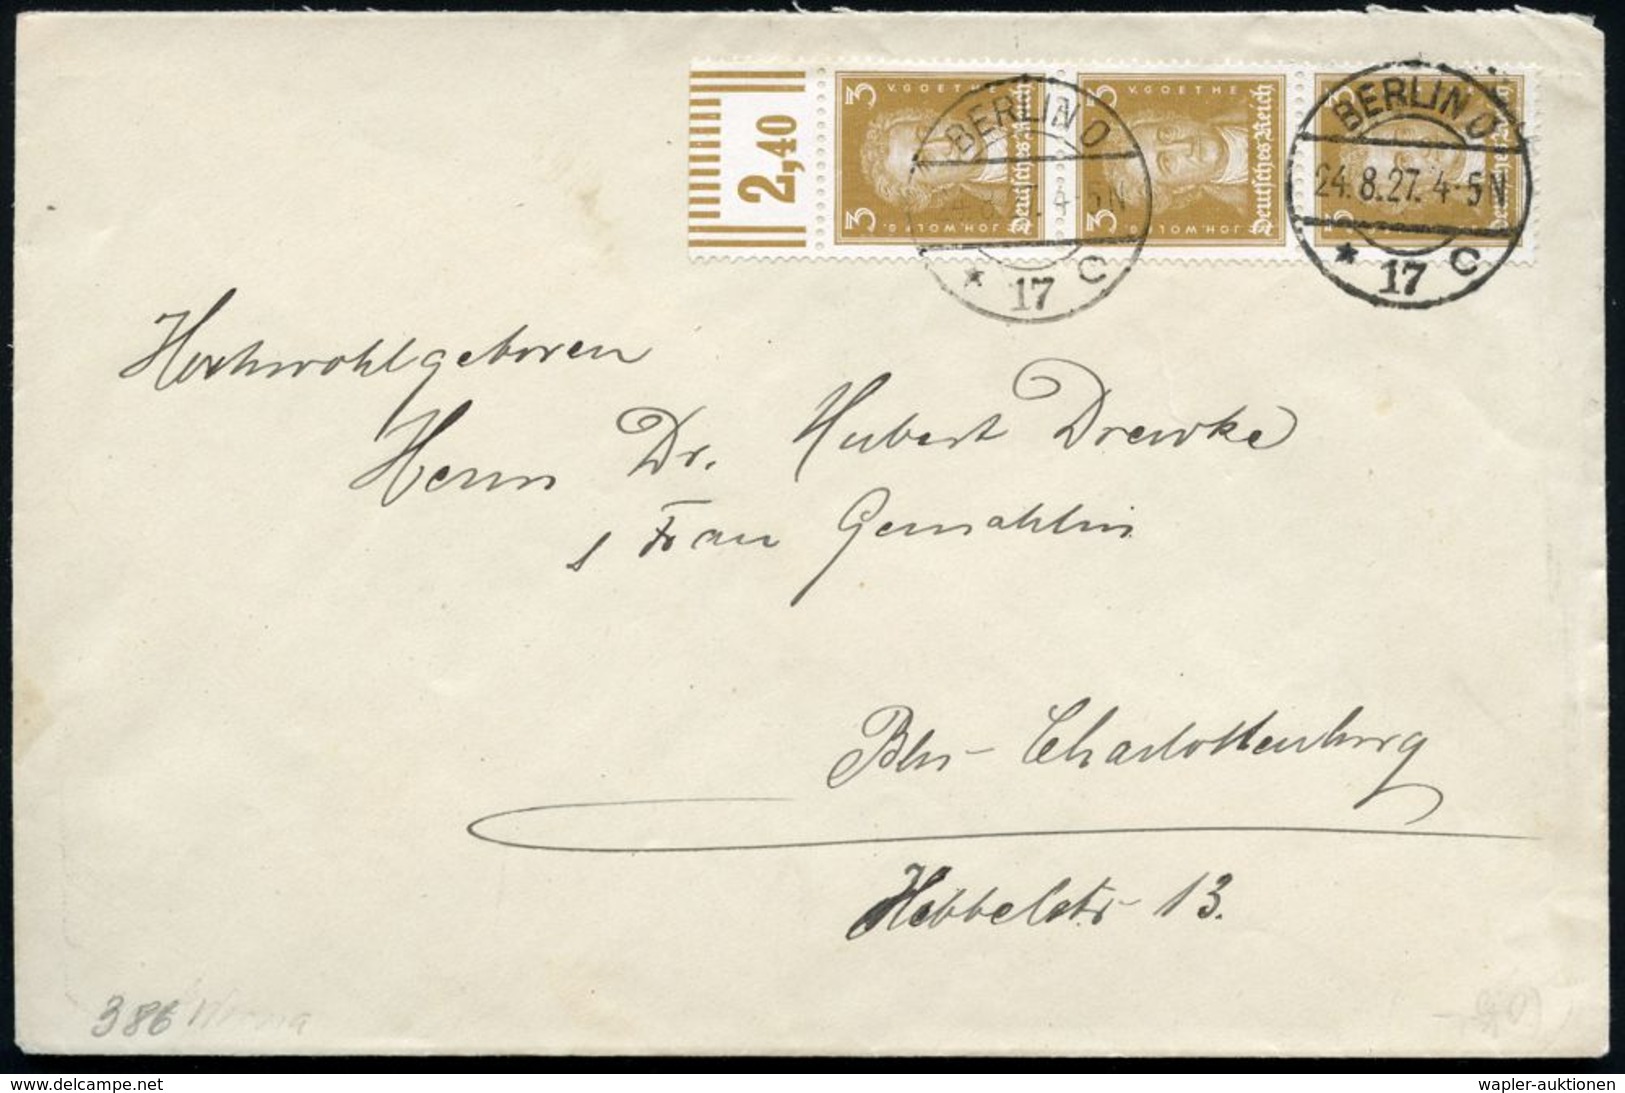 2,40
3 V. GOETHE 3
Deutsches Reich
JOH. WOLFG.
3 V. GOETHE 3
Deutsches Reich
JOH. WOLFG.
BERLIN O
24.8.27. 4-5 N
* 17 C
BERLIN O
24.8.27. 4-5 N
* 17 C
Hochwohlgeboren
Herrn Dr. Hubert Drewke
Frau Gemahlin
Bln - Charlottenburg
Hebbelstr 13.
386
delcampe.net
wapler-auktionen